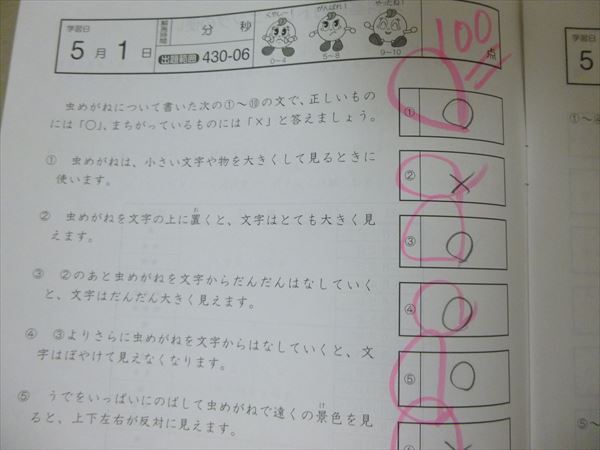 学習日
5月1日
解答時間 分 秒
出題範囲 430-06
くやし〜! がんばれ! やったね!
0〜4 5〜8 9〜10
100点
虫めがねについて書いた次の①〜⑩の文で、正しいもの
には「○」、まちがっているものには「×」と答えましょう。
① 虫めがねは、小さい文字や物を大きくして見るときに
使います。
② 虫めがねを文字の上に置くと、文字はとても大きく見
えます。
③ ②のあと虫めがねを文字からだんだんはなしていく
と、文字はだんだん大きく見えます。
④ ③よりさらに虫めがねを文字からはなしていくと、文
字はぼやけて見えなくなります。
⑤ うでをいっぱいにのばして虫めがねで遠くの景色を見
ると、上下左右が反対に見えます。
① ○
② ×
③ ○
④ ○
⑤ ○
学習日
5
①〜
⑤〜